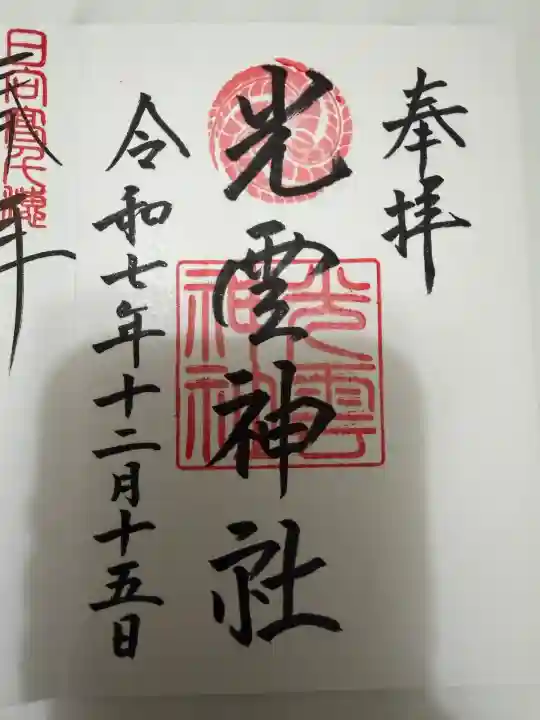 奉拝
光雲神社
光雲神社
令和七年十二月十五日